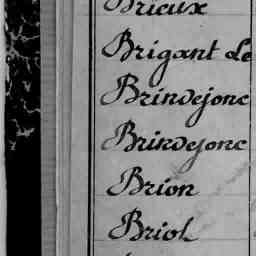 Brieux
Brigant Le
Brindejonc
Brindejonc
Brion
Briot